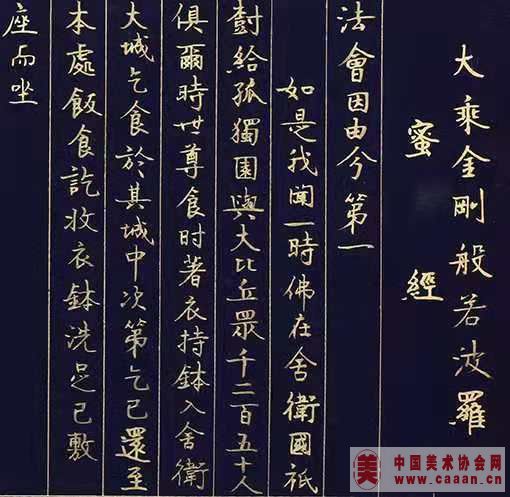 大乘金剛般若波羅
蜜經
法會因由兮第一
如是我聞一時佛在舍衛國祇
樹給孤獨園與大比丘眾千二百五十人
俱爾時世尊食时著衣持鉢入舍衛
大城乞食於其城中次第乞已還至
本處飯食訖收衣鉢洗足已敷
座而坐
美
中国美术协会网
www.caaan.cn